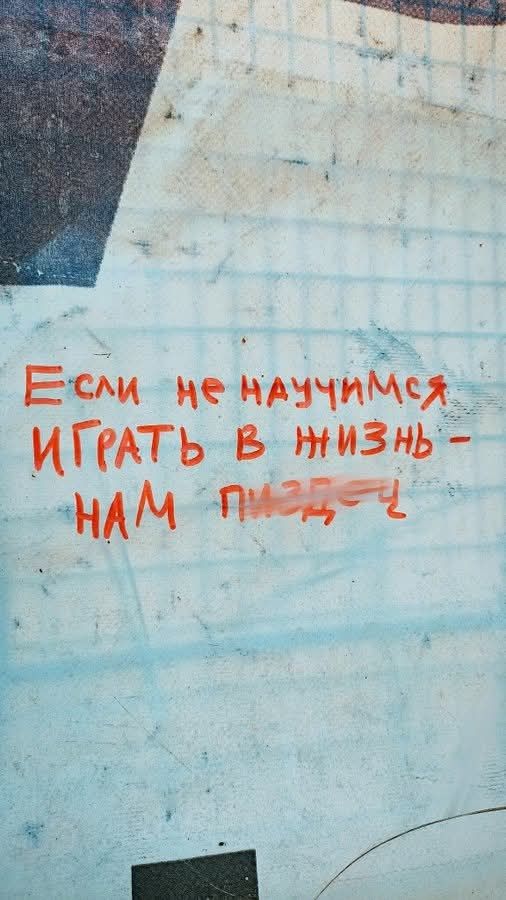 Если не научимся
ИГРАТЬ В ЖИЗНЬ -
НАМ ПИЗДЕЦ